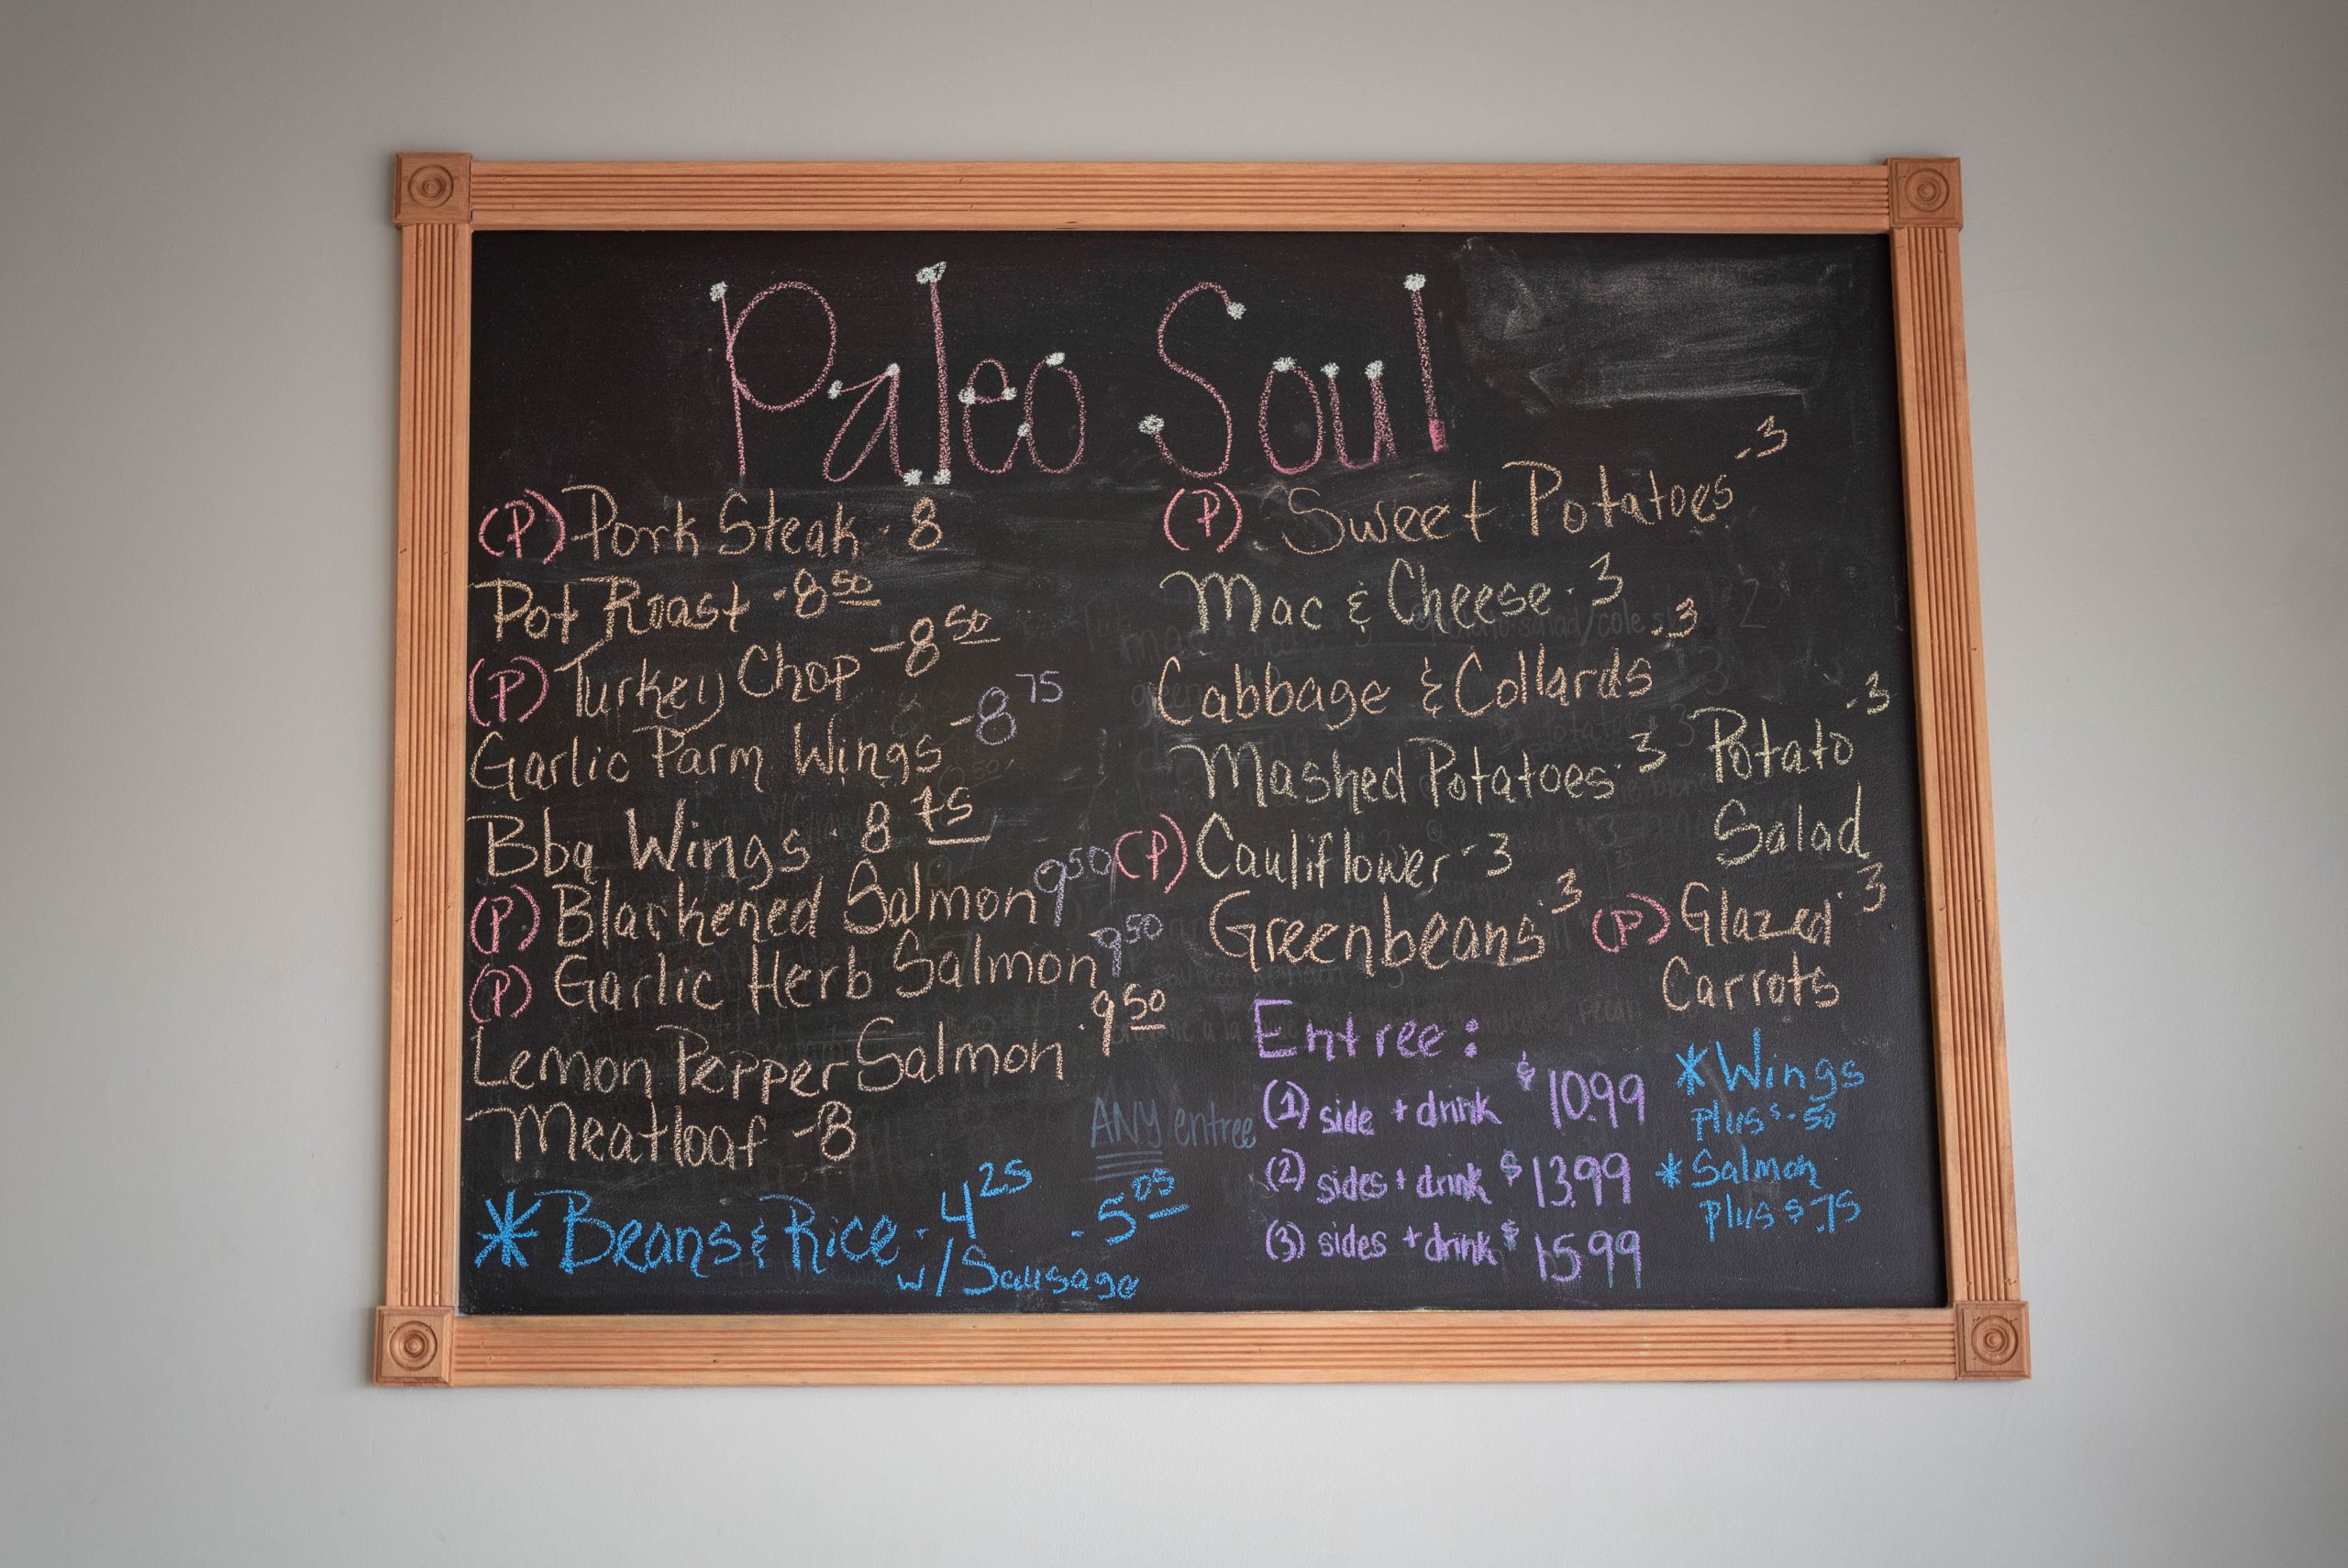 Paleo Soul
(P) Pork Steak - 8
Pot Roast - 8 50
(P) Turkey Chop - 8 50
Garlic Parm Wings - 8 75
Bbq Wings - 8 75
(P) Blackened Salmon 9 50
(P) Garlic Herb Salmon 9 50
Lemon Pepper Salmon - 9 50
Meatloaf - 8
* Beans & Rice - 4 25
w/ Sausage - 5 05
(P) Sweet Potatoes - 3
Mac & Cheese - 3
Cabbage & Collards - 3
Mashed Potatoes - 3
Potato Salad - 3
(P) Cauliflower - 3
Greenbeans - 3
(P) Glazed Carrots - 3
ANY entree
Entree:
(1) side + drink $10.99
(2) sides + drink $13.99
(3) sides + drink $15.99
* Wings
plus $.50
* Salmon
plus $.75